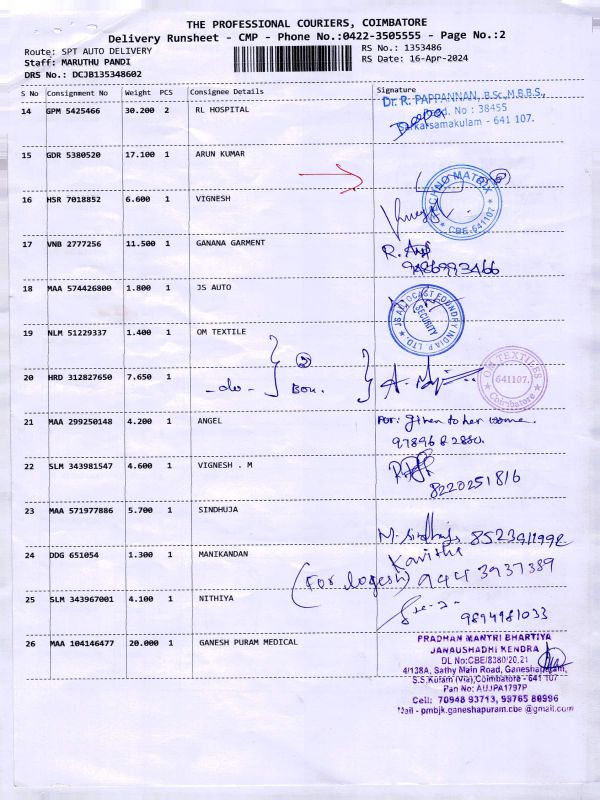 THE PROFESSIONAL COURIERS, COIMBATORE
Delivery Runsheet - CMP - Phone No.:0422-3505555 - Page No.:2
Route: SPT AUTO DELIVERY
RS No.: 1353486
Staff: MARUTHU PANDI
RS Date: 16-Apr-2024
DRS No.: DCJB135348602
S No Consignment No Weight PCS Consignee Details Signature
14 GPM 5425466 30.200 2 RL HOSPITAL
Dr. R. PAPPANNAN, B.Sc.,M.B.B.S.,
No : 38455
Sarkarsamakulam - 641 107.
15 GDR 5380520 17.100 1 ARUN KUMAR
TECHNO MATRIX
CBE-641107
16 HSR 7018852 6.600 1 VIGNESH
17 VNB 2777256 11.500 1 GANANA GARMENT
9486993466
18 MAA 574426800 1.800 1 JS AUTO
JS AUTOCAST FOUNDRY INDIA P LTD.
SECURITY
19 NLM 51229337 1.400 1 OM TEXTILE
OM TEXTILES
641107.
Coimbatore
20 HRD 312827650 7.650 1 -do- 2 Box.
21 MAA 299250148 4.200 1 ANGEL
For: given to her
22 SLM 343981547 4.600 1 VIGNESH . M
8220251816
23 MAA 571977886 5.700 1 SINDHUJA
M. Sindhuja
24 DDG 651054 1.300 1 MANIKANDAN
Kavitha
(For logesh) 9443937389
25 SLM 343967001 4.100 1 NITHIYA
9894981033
26 MAA 104146477 20.000 1 GANESH PURAM MEDICAL
PRADHAN MANTRI BHARTIYA
JANAUSHADHI KENDRA
DL No:CBE/8380/20,21
4/138A, Sathy Main Road, Ganeshapuram,
S.S.Kulam (Via),Coimbatore - 641 107
Pan No: AUJPA1797P
Cell: 70948 93713, 99765 80996
Mail - pmbjk.ganeshapuram.cbe @gmail.com